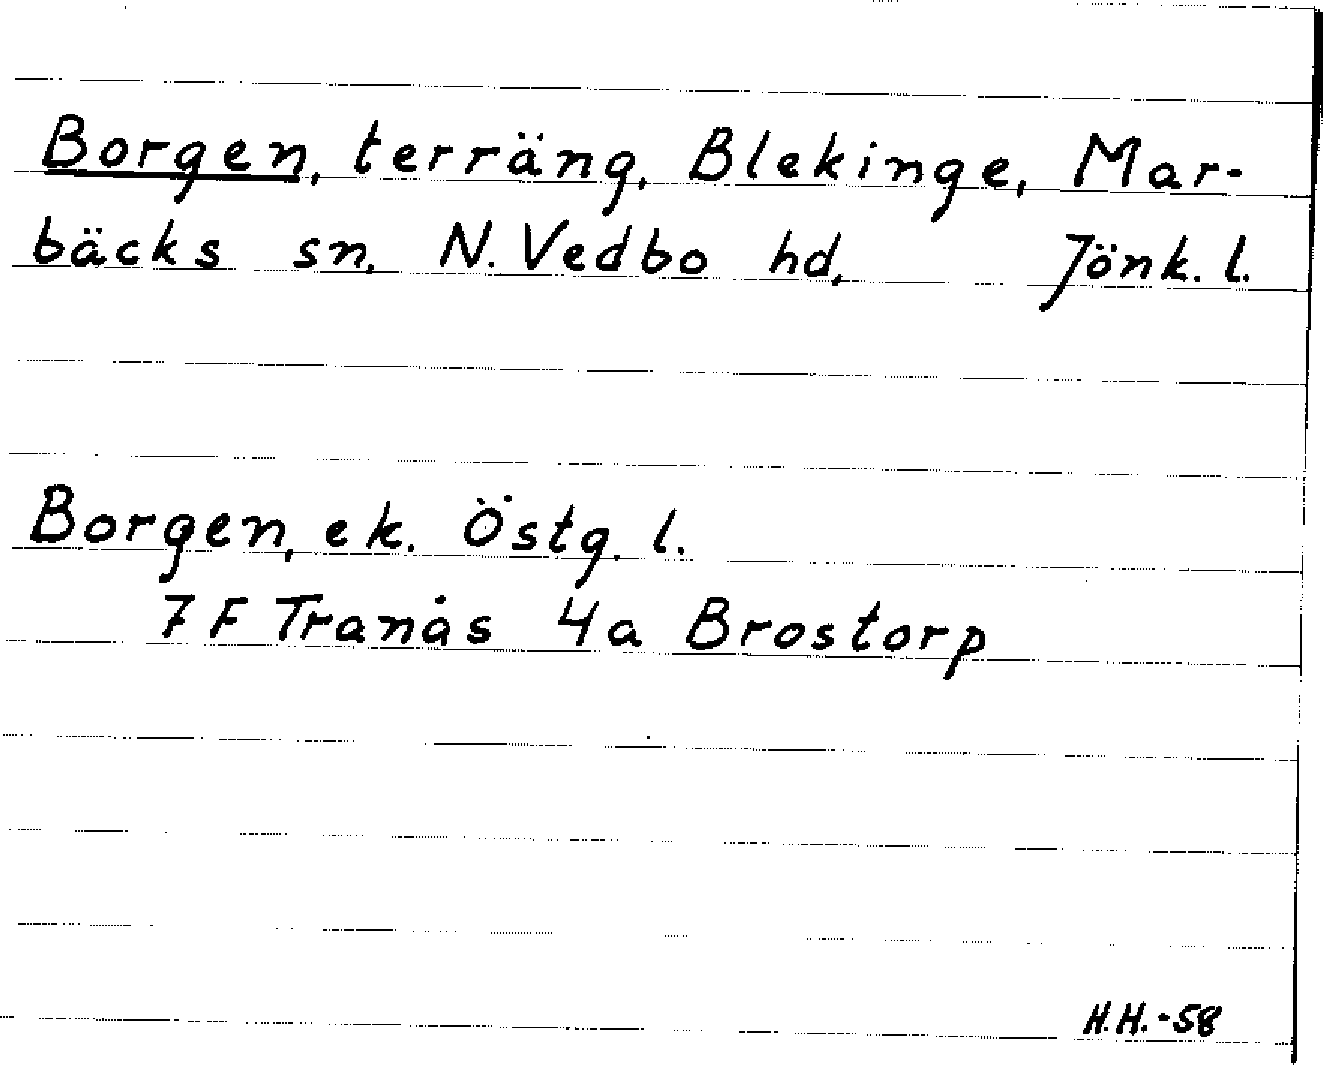 Borgen, terräng, Blekinge, Mar-
bäcks sn, N. Vedbo hd, Jönk. l.
Borgen, ek. Östg. l.
7 F Tranås 4a Brostorp
H.H.-58